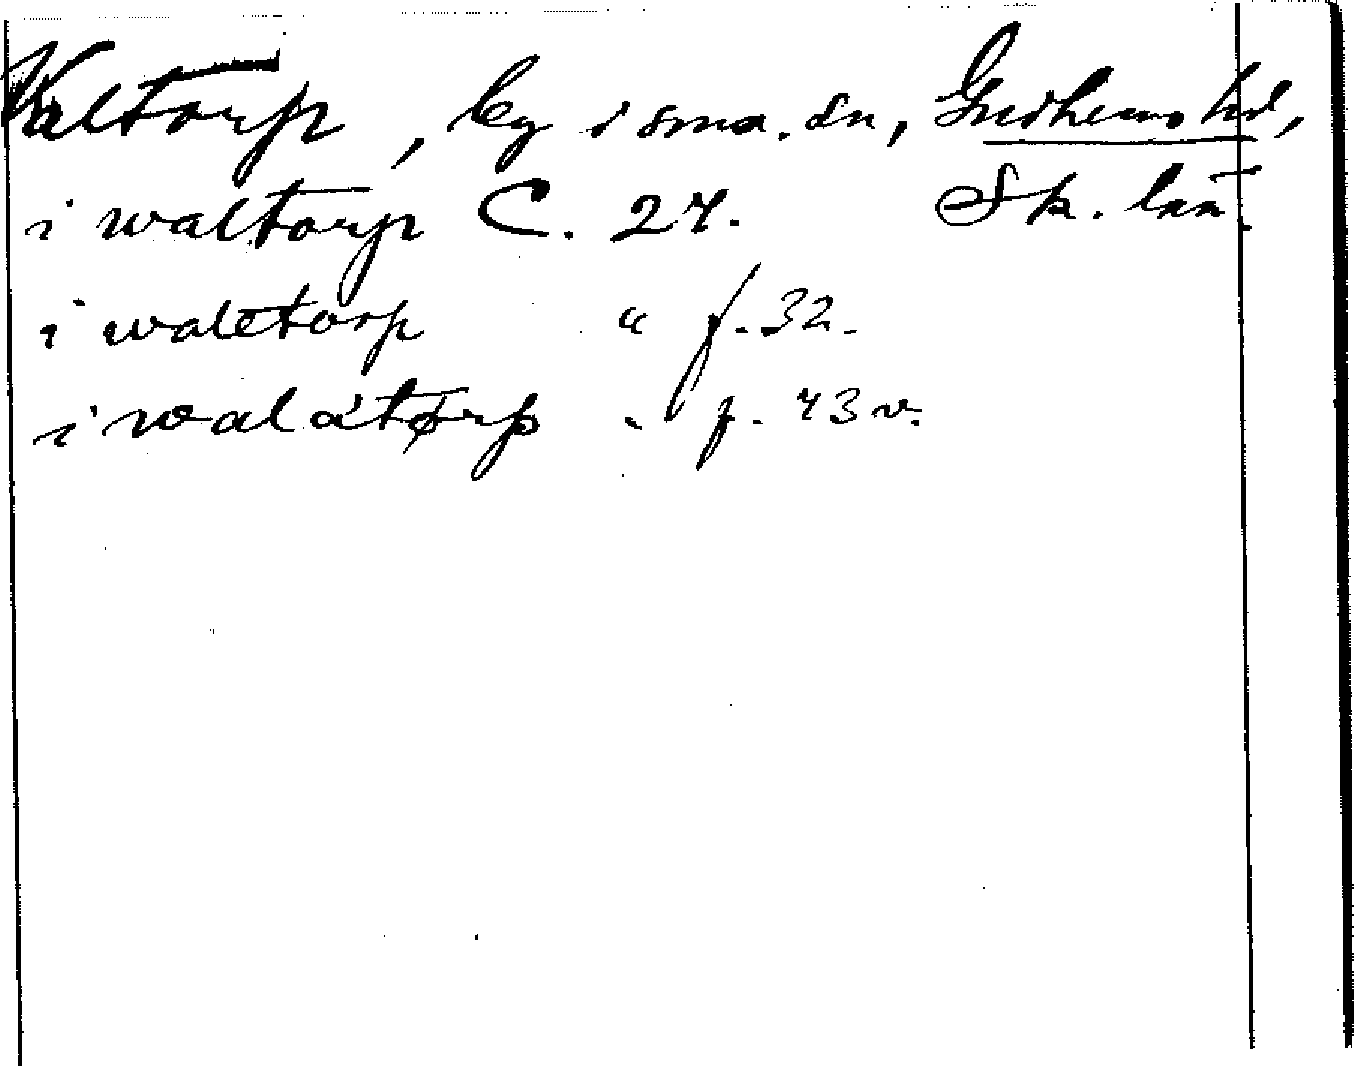 Valtorp, by i sma. sn, Gudhems hd,
i waltorp C. 27. Sk. län.
i waletorp " f. 32.
i walatørp " f. 43 v.